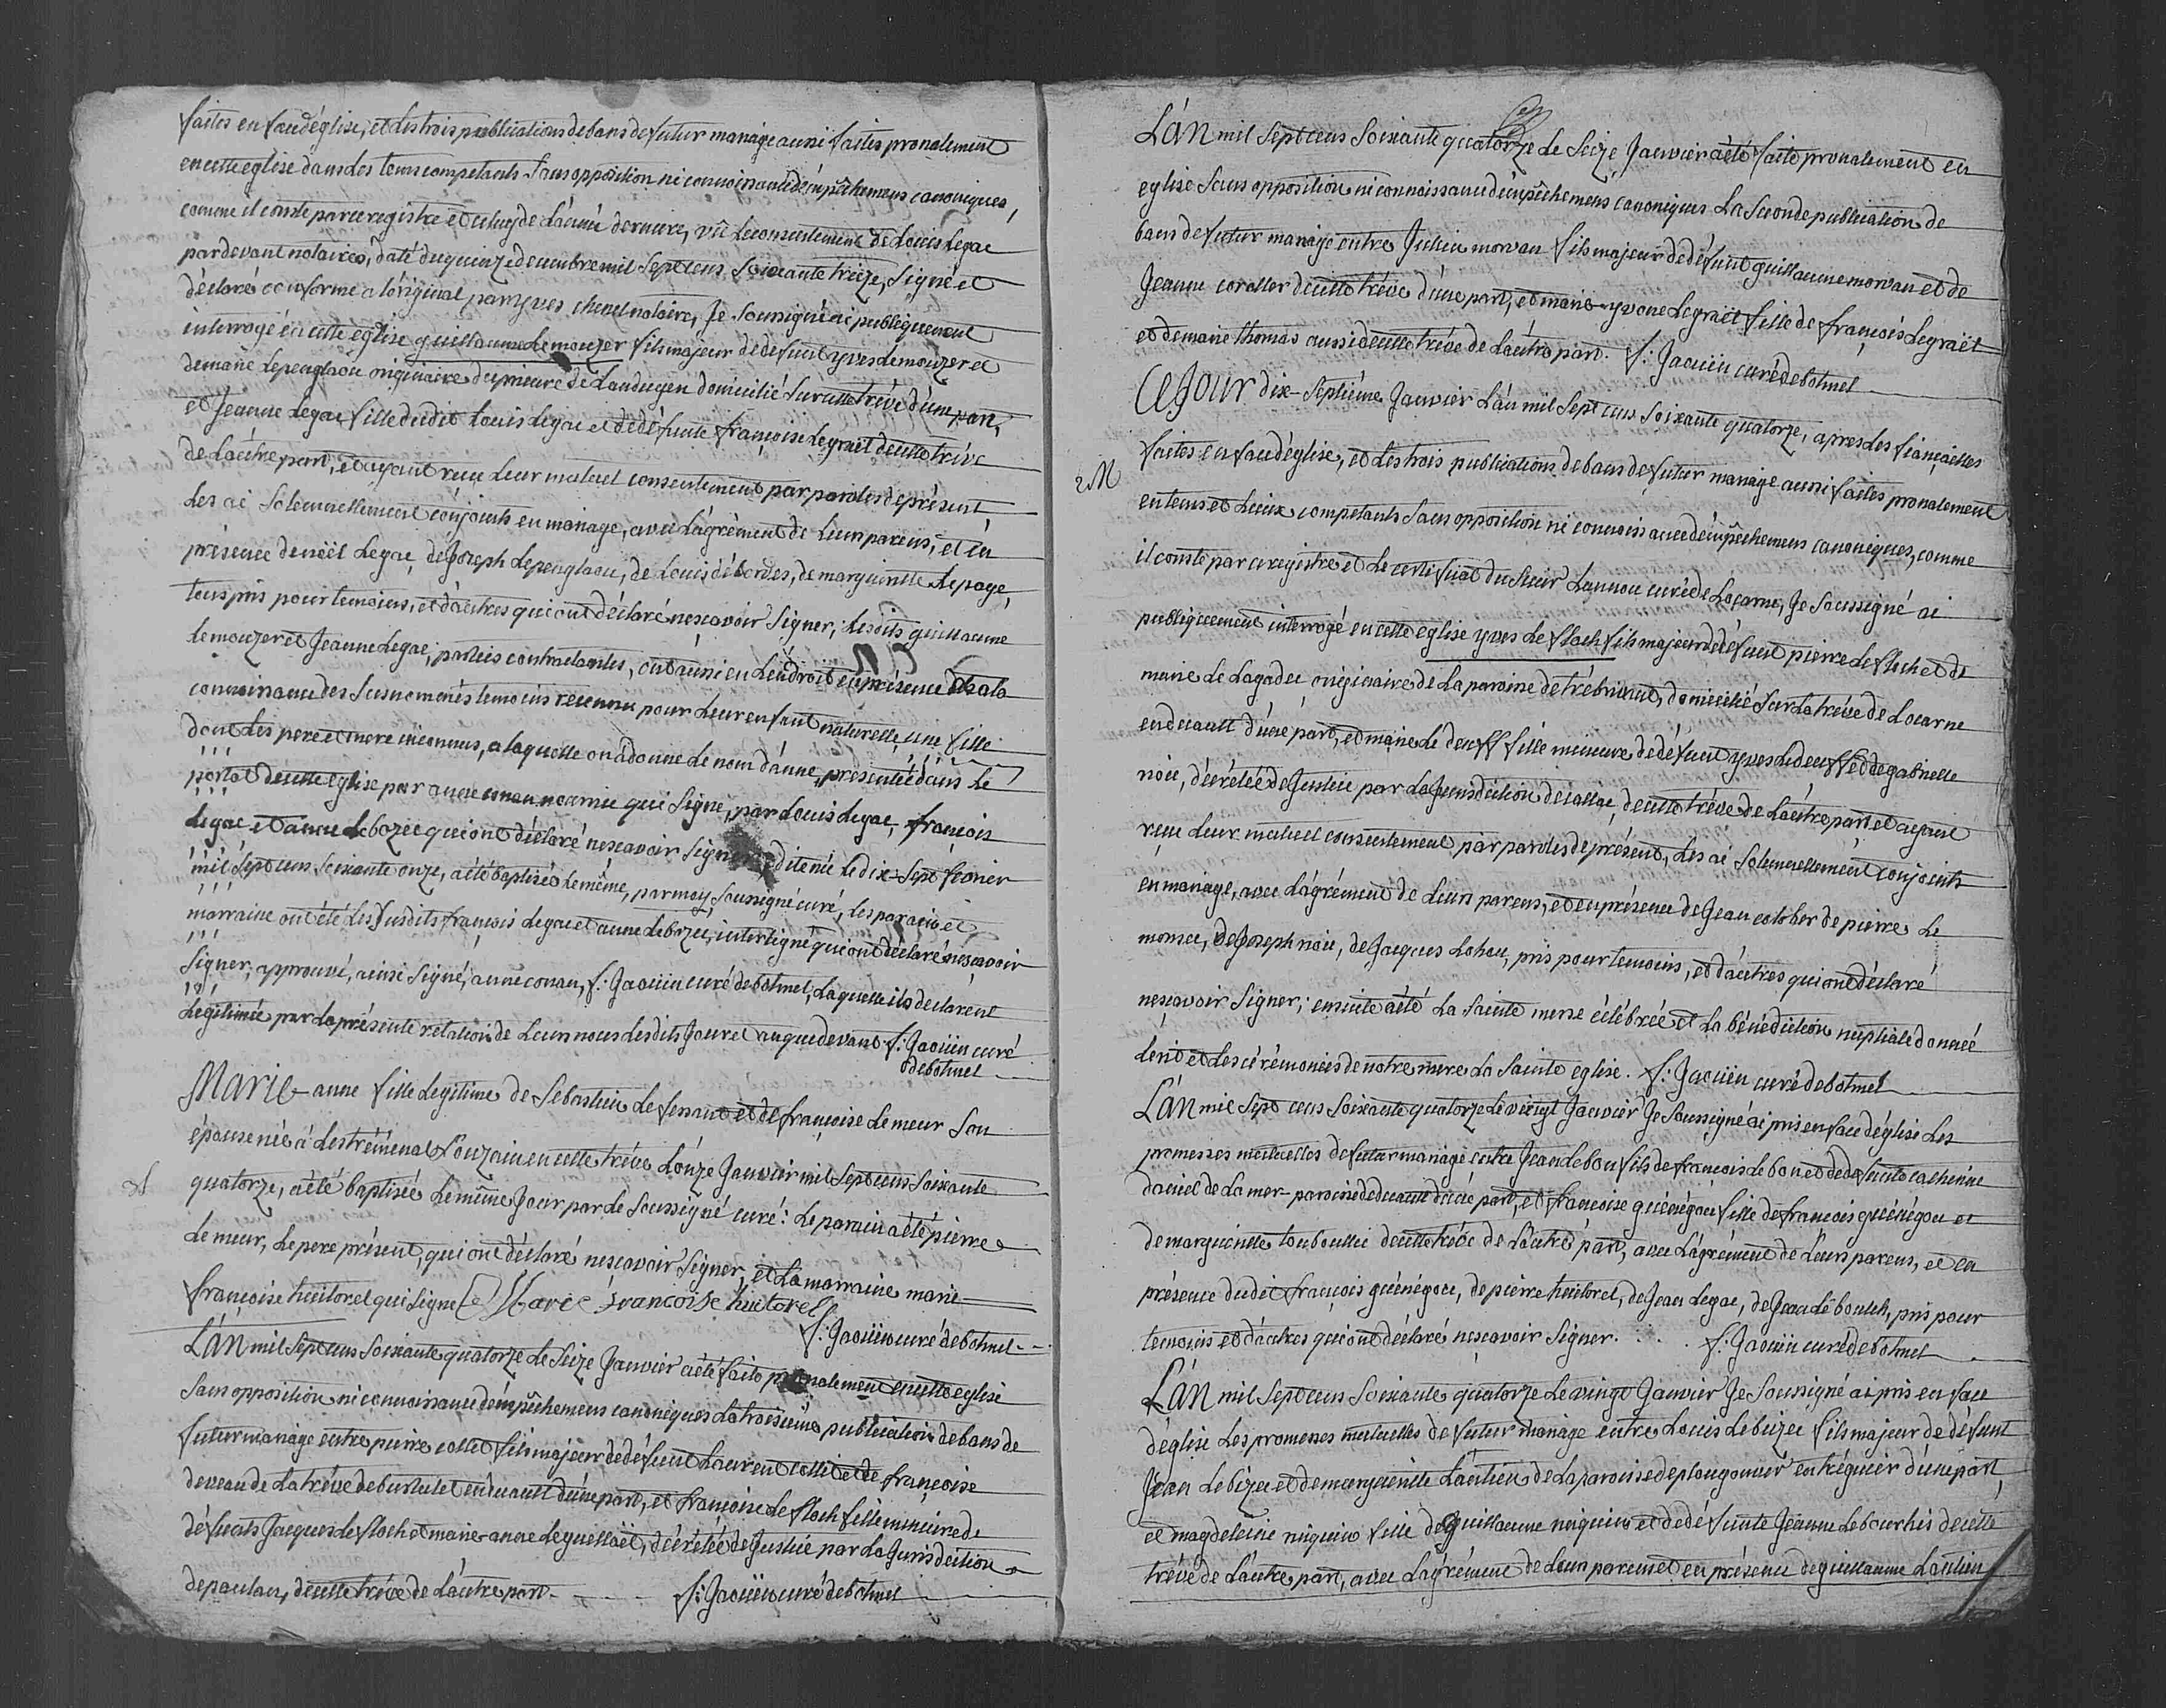 faites en face d'église, et les trois publications de bans de futur mariage aussi faites pronalement
en cette eglise dans les tems competants sans opposition ni connoissance d'émpêchemens canoniques,
comme il conste par ce registre et celuy de l'année derniere, vû le consentement de Louis Legac
pardevant notaires, daté du quinze decembre mil sept cens soixante treize, signé et
déclaré conforme a l'original par yves notaire, Je soussigné ai publiquement
interrogé en cette église guillaume Lemouzer fils majeur de défunt yves Lemouzer et
de marie Lepenglaou originaire du prieuré de Landugen domicilié sur cette trève d'une part,
et Jeanne Legac fille dudit Louis Legac et de défunte françoise Legraët de cette trève
de l'autre part, et ayant reçu leur mutuel consentement par paroles de présent
les ai solemnellement conjoints en mariage, avec l'agrément de leurs parens, et en
présence de noël Legac, de Joseph Lepenglaou, de Louis débordes, de marguerite Lepage,
tous pris pour temoins, et d'autres qui ont déclaré ne sçavoir signer; lesdits guillaume
Lemouzer et Jeanne Legac, parties contractantes, ont aussi en l'endroit en présence et à la
connoissance des susnommés temoins reconnu pour leur enfant naturelle, une fille
dont les pere et mere inconnus, a laquelle on a donné le nom d'anne, presentée dans le
portal de cette eglise par anne conan nourrice qui signe, par Louis Legac, françois
Legac et anne Lebozec qui ont déclaré ne sçavoir signer, ditte née le dix-sept fevrier
mil sept cens soixante onze, a été baptisée le même, par moy soussigné curé, les parain et
marraine ont été les susdits françois Legac et anne Lebozec, interligné qui ont déclaré ne sçavoir
signer, approuvé, ainsi signé, anne conan, f: Jaouën curé de botmel, laquelle ils declarent
Legitimée par la présente relation de leurs noces lesdits Jour et an que devant f: Jaouën curé
de botmel
Marie-anne fille Legitime de Sebastien Le ferrant et de françoise Lemeur son
épouse née à Lestrémeal Rouzain en cette trève l'onze Janvier mil sept cens soixante
quatorze, a été baptisée le même Jour par le soussigné curé: le parain a été pierre
Lemeur, le pere présent, qui ont déclaré ne sçavoir signer, et la marraine marie
françoise huitorel qui signe Marie Françoise huitorel
f: Jaouën curé de botmel
L'AN mil sept cens soixante quatorze le seize Janvier a été faite pronalement en cette eglise
sans opposition ni connoissance d'émpêchemens canoniques la troisieme publication de bans de
futur mariage entre pierre collet fils majeur de défunt Laurent collet et de françoise
deveau de la trève de burtulet en ducault d'une part, et françoise Le floch fille mineure de
défunts Jacques Le floch et marie-anne Leguellaët, décrétée de Justice par la Jurisdiction
de paulau, de cette trève de l'autre part. f: Jaouën curé de botmel
L'AN mil sept cens soixante quatorze le seize Janvier a été faite pronalement en
eglise sans opposition ni connoissance d'émpêchemens canoniques la seconde publication de
bans de futur mariage entre Julien morvan fils majeur de défunt guillaume morvan et de
Jeanne coroller de cette trève d'une part, et marie-yvone Legraët fille de françois Legraët
et de marie thomas aussi de cette trève de l'autre part. f: Jaouën curé de botmel
Ce JOUR dix-septième Janvier l'an mil sept cens soixante quatorze, apres les fiançailles
2 M
faites en face d'église, et les trois publications de bans de futur mariage aussi faites pronalement
en tems et Lieux competants sans opposition ni connoissance d'émpêchemens canoniques, comme
il conste par ce registre et le certificat du Sieur Lannou curé de Locarne, Je soussigné ai
publiquement interrogé en cette eglise yves Le floch fils majeur de défunt pierre Le floch et de
marie Le Lagadec originaire de la paroisse de trébrivant, domicilié sur la trève de Locarne
en ducault d'une part, et marie Le deuff fille mineure de défunt yves Le deuff et de gabrielle
noic, décrétée de Justice par la Jurisdiction de callac, de cette trève de l'autre part et ayant
reçu leur mutuel consentement par paroles de présent, les ai solemnellement conjoints
en mariage, avec l'agrément de leurs parens, et en présence de Jean cotober de pierre Le
momet, de Joseph noic, de Jacques Lohou, pris pour temoins, et d'autres qui ont déclaré
ne sçavoir signer; ensuite a été la sainte messe célébrée et la bénédiction nuptiale donnée
le rit et les cérémonies de notre mere la sainte eglise. f: Jaouën curé de botmel
L'AN mil sept cens soixante quatorze le vingt Janvier Je soussigné ai pris en face d'église les
promesses mutuelles de futur mariage entre Jean Lebon fils de françois Lebon et de défunte catherine
daniel de la mer-paroisse de ducault d'une part, et françoise guénégou fille de françois guénégou et
de marguerite touboullic de cette trève de l'autre part, avec l'agrément de leurs parens, et en
présence dudit françois guénégou, de pierre huitorel, de Jean Legac, de Jean Le boulch, pris pour
temoins et d'autres qui ont déclaré ne sçavoir signer. f: Jaouën curé de botmel
L'AN mil sept cens soixante quatorze le vingt Janvier Je soussigné ai pris en face
d'église les promesses mutuelles de futur mariage entre Louis Lebizec fils majeur de défunt
Jean Lebizec et de marguerite Lautien de la paroisse de plougonver en tréguier d'une part,
et magdeleine niquin fille de guillaume niquin et de défunte Jeanne Lebourhis de cette
trève de l'autre part, avec l'agrément de leurs parens et en présence de guillaume Lautien